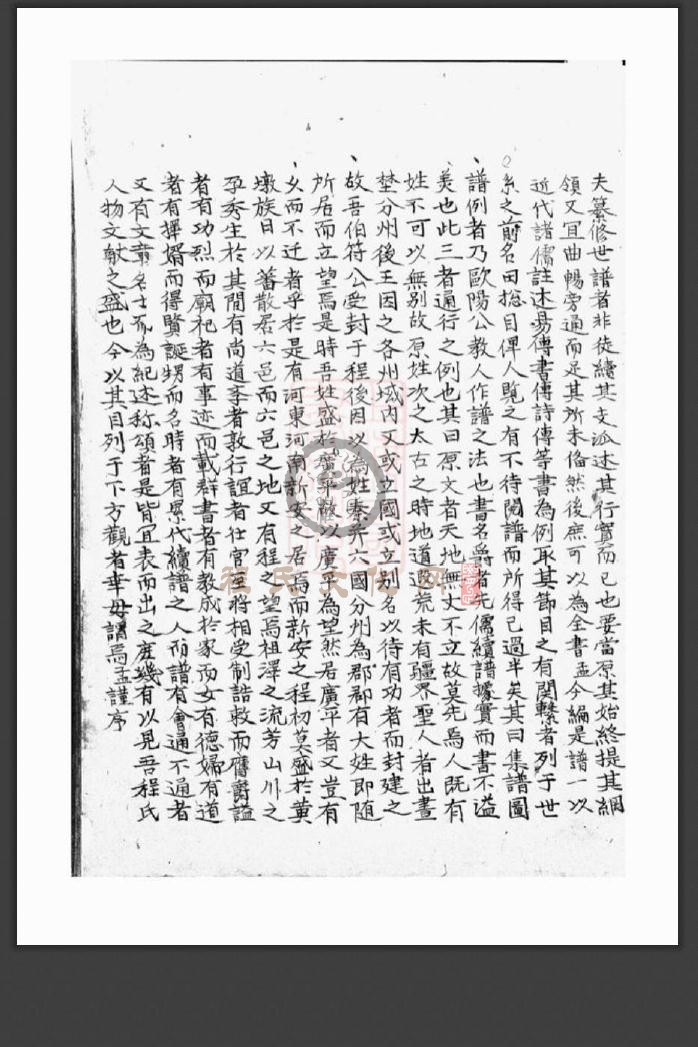 夫纂修世譜者非徒續其支派述其行實而已也要當原其始終提其綱
領又宜曲暢旁通而足其所未俻然後庶可以為全書孟今編是譜一以
近代諸儒註述易傳書傳詩傳等書為例取其節目之有関繫者列于世
系之前名曰捴目俾人覧之有不待閱譜而所得已過半矣其曰集譜圖
譜例者乃歐陽公教人作譜之法也書名爵者先儒續譜據實而書不溢
美也此三者遍行之例也其曰原文者天地無丈不立故莫先焉人既有
姓不可以無别故原姓次之太古之時地道遐荒未有疆界聖人者出畫
埜分州後王因之各州域内又或立國或立别名以待有功者而封建之
故吾伯符公受封于程後因以為姓秦并六國分州為郡郡有大姓即随
所居而立望焉是時吾姓盛於廣平故以廣平為望然居廣平者又豈有
久而不迁者乎於是有河東河南新安之居焉而新安之程初莫盛於黄
墩族日以蕃散居六邑而六邑之地又有程之望焉祖澤之流芳山川之
孕秀生於其間有尚道李者敦行誼者仕宦至将相受制誥敕而膺爵謚
者有功烈而廟祀者有事迹而載群書者有教成於家而女有德婦有道
者有擇婿而得賢誕甥而名時者有累代續譜之人而譜有會通不通者
又有文章名士而為紀述称頌者是皆宜表而出之庶幾有以見吾程氏
人物文献之盛也今以其目列于下方觀者幸毋誚焉孟謹序
程氏文化网